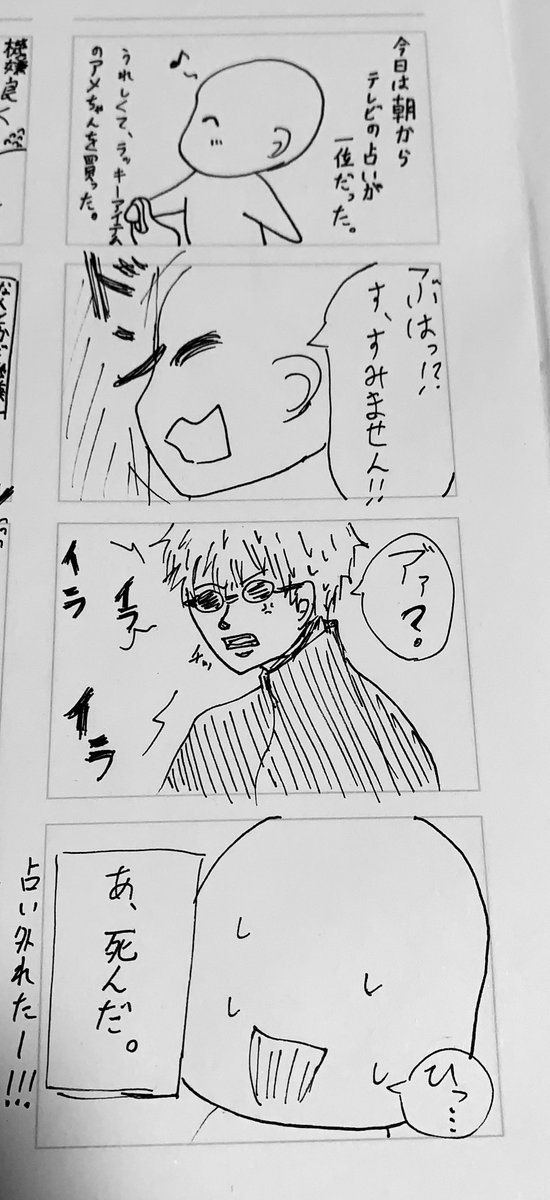 今日は朝から
テレビの占いが
一位だった。
うれしくて、ラッキーアイテム
のアメちゃんを買った。
ぶはっ!?
す、すみません!!
ドン
アァ?。
イラ
イラ
イラ
チッ
あ、死んだ。
ひっ…
占い外れたー!!!
機嫌良く